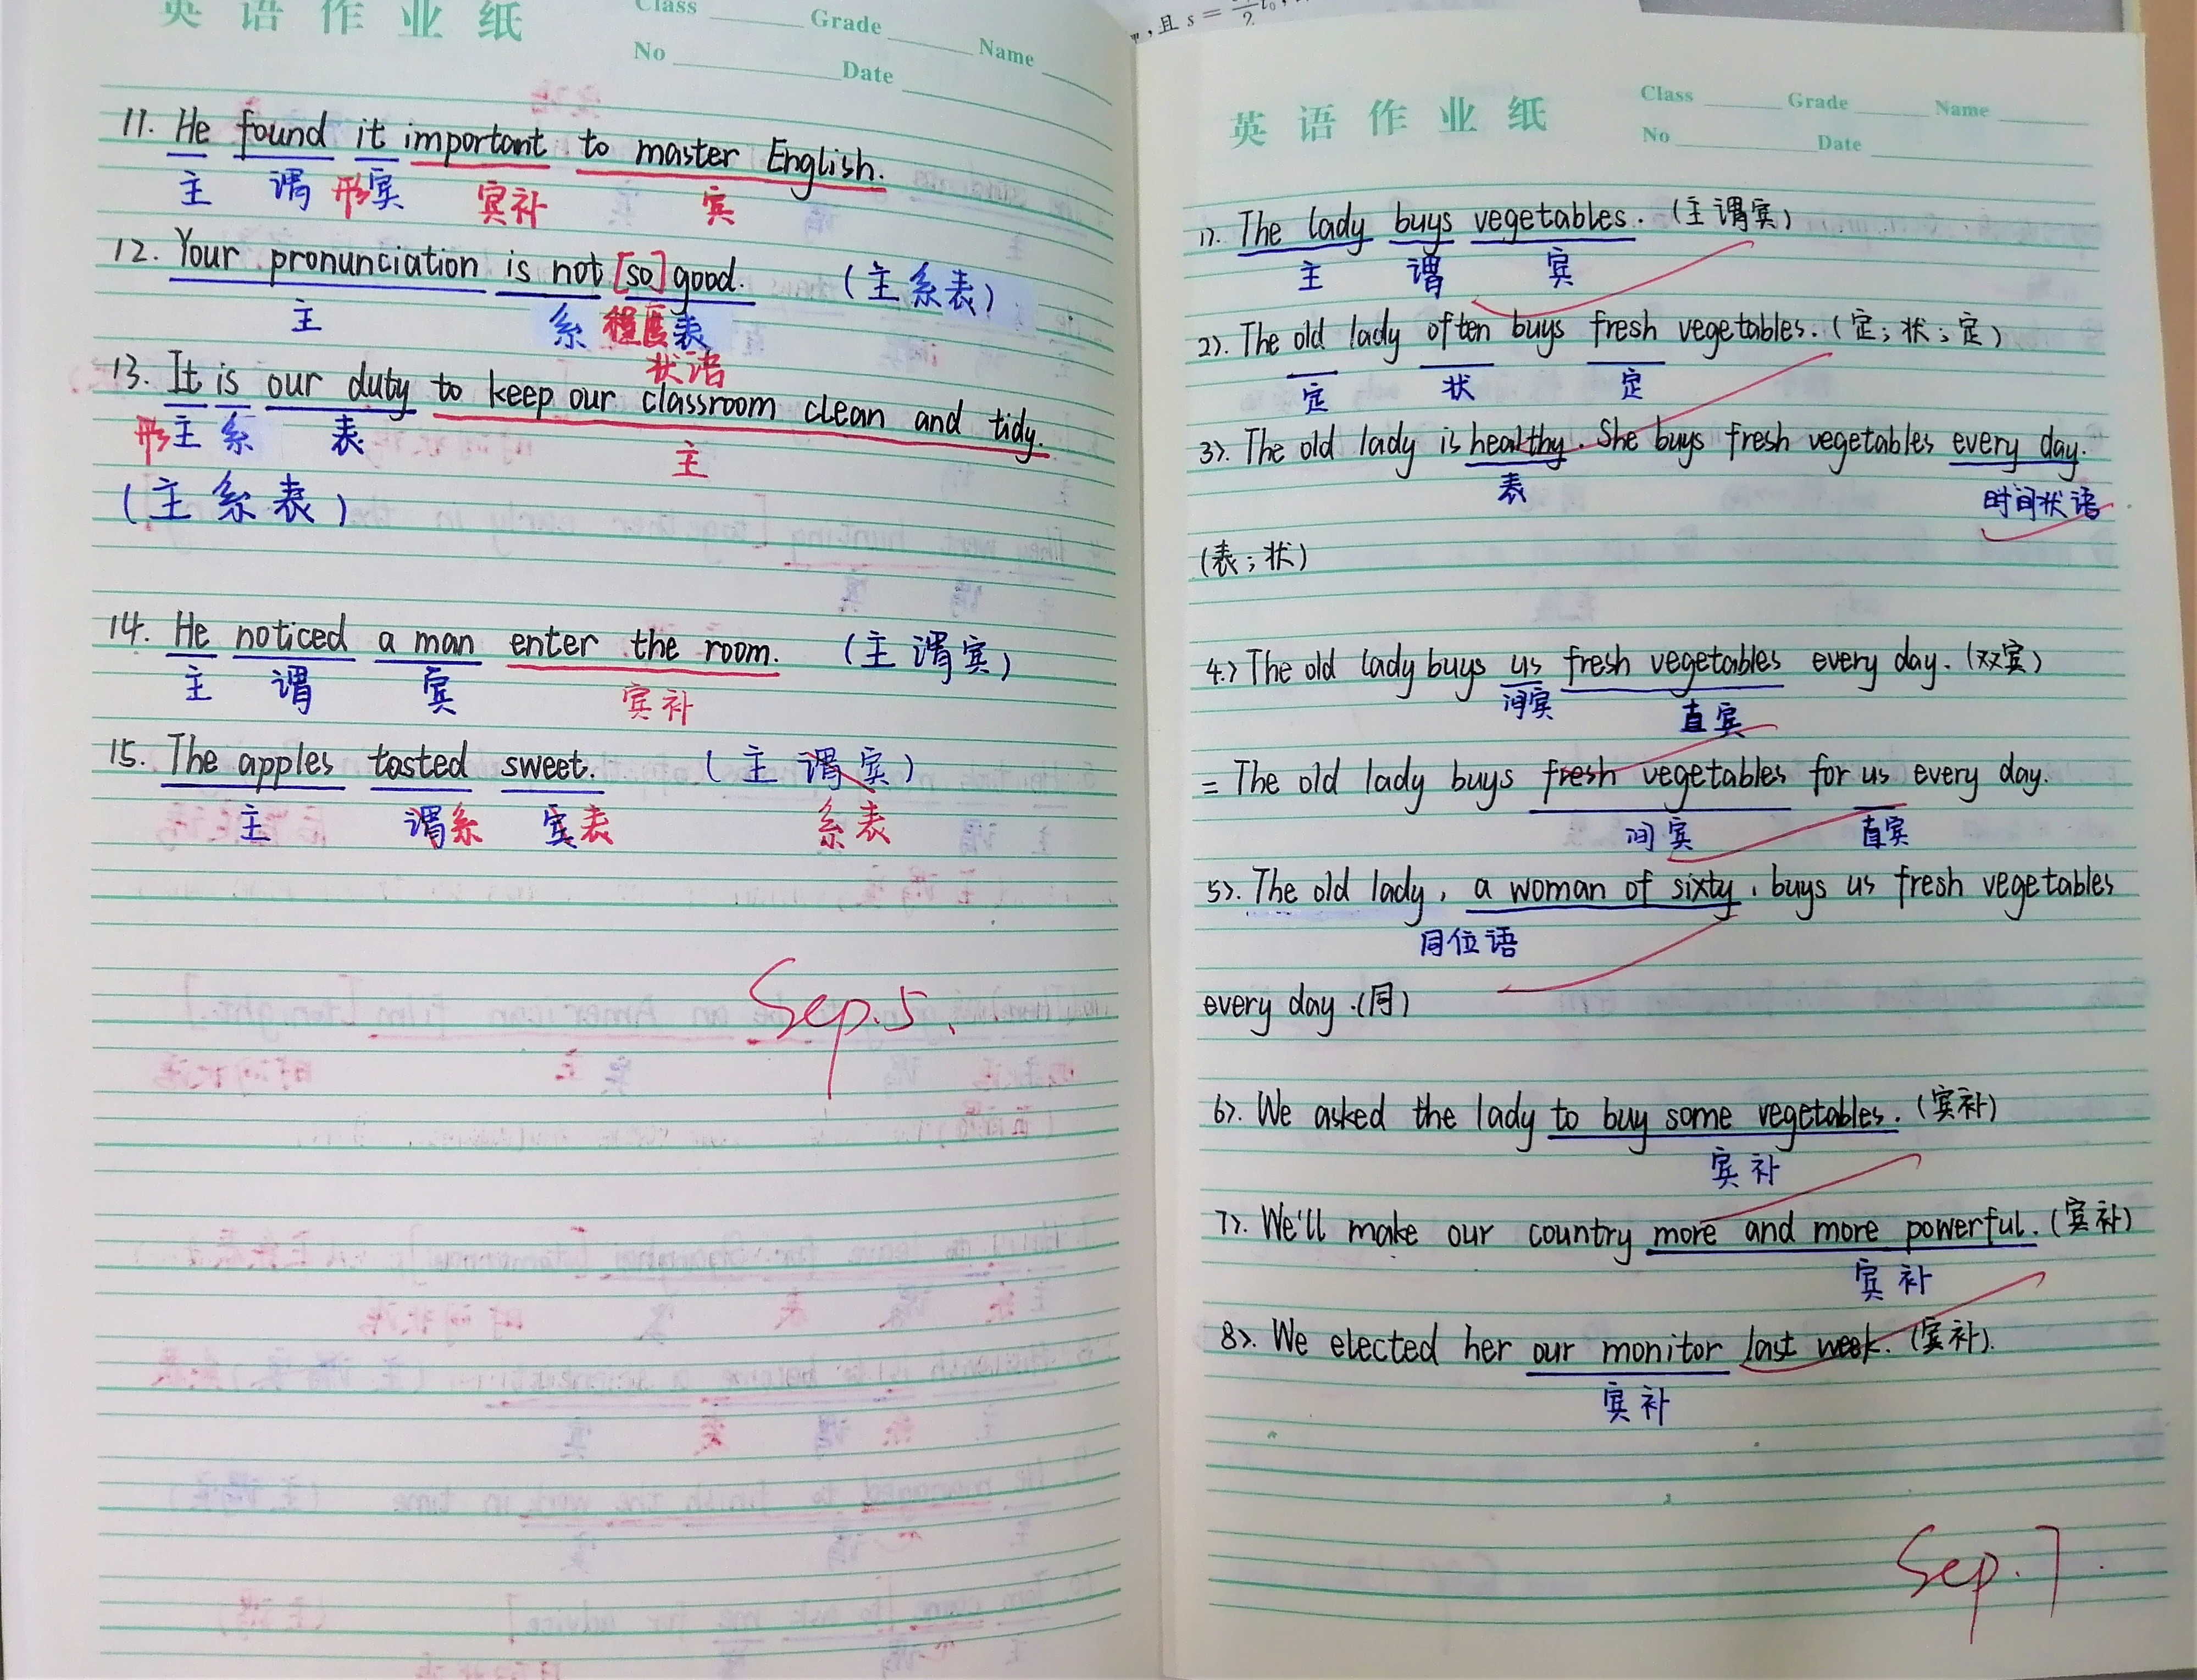 英语作业纸
Class Grade Name
No Date
11. He found it important to master English.
主 谓 形宾 宾补 宾
12. Your pronunciation is not [so] good. (主系表)
主 系 程度 表
状语
13. It is our duty to keep our classroom clean and tidy.
形主 系 表 主
(主系表)
14. He noticed a man enter the room. (主谓宾)
主 谓 宾 宾补
15. The apples tasted sweet. (主谓宾)
主 谓系 宾表 系表
Sep.5.
,且 s =
英语作业纸
Class Grade Name
No Date
1). The lady buys vegetables. (主谓宾)
主 谓 宾
2). The old lady often buys fresh vegetables. (定;状;定)
定 状 定
3). The old lady is healthy. She buys fresh vegetables every day.
表 时间状语
(表;状)
4.) The old lady buys us fresh vegetables every day. (双宾)
间宾 直宾
= The old lady buys fresh vegetables for us every day.
间宾 直宾
5). The old lady, a woman of sixty, buys us fresh vegetables
同位语
every day. (同)
6). We asked the lady to buy some vegetables. (宾补)
宾补
7). We'll make our country more and more powerful. (宾补)
宾补
8). We elected her our monitor last week. (宾补).
宾补
Sep.7.